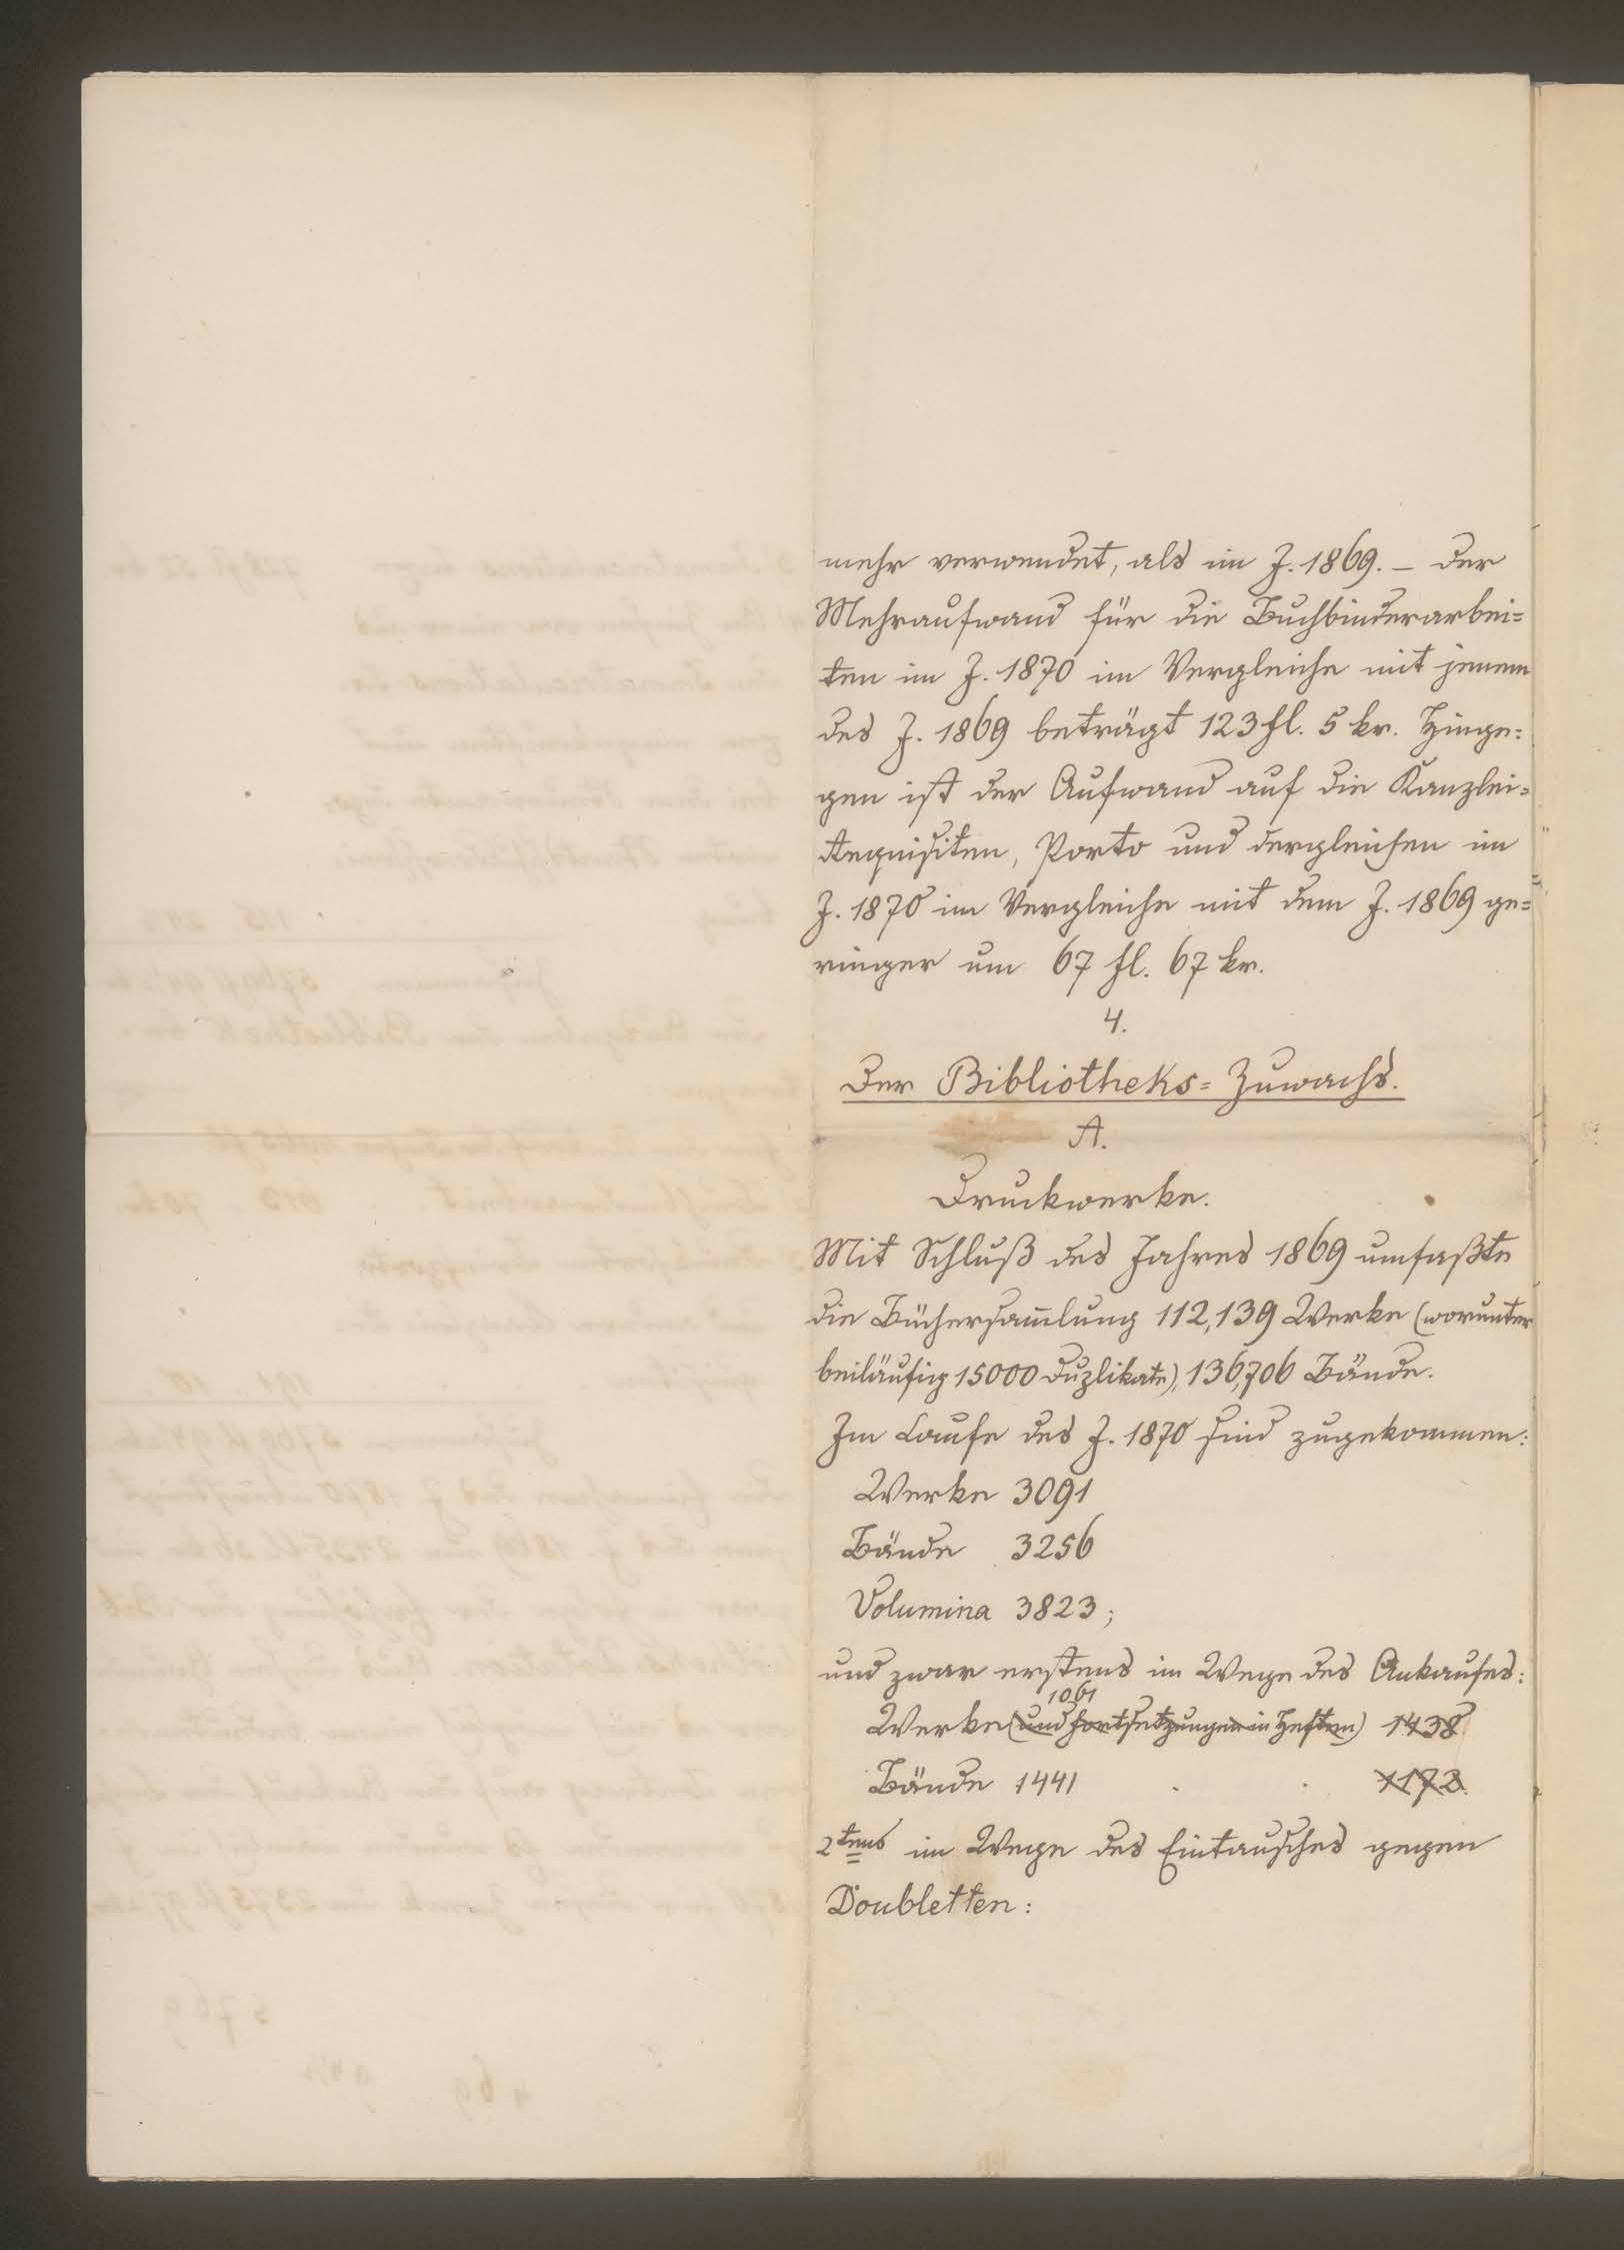 mehr verwendet, als im J. 1869. – Der
Mehraufwand für die Buchbinderarbei=
ten im J. 1870 im Vergleiche mit jenem
des J. 1869 beträgt 123 fl. 5 kr. Hinge=
gen ist der Aufwand auf die Kanzlei=
Requisiten, Porto und dergleichen im
J. 1870 im Vergleiche mit dem J. 1869 ge=
ringer um 67 fl. 67 kr.
4.
Der Bibliotheks=Zuwachs.
A.
Druckwerke.
Mit Schluß des Jahres 1869 umfaßte
die Büchersam̅lung 112,139 Werke (worunter
beiläufig 15000 Duplikate), 136,706 Bände.
Im Laufe des J. 1870 sind zugekommen:
Werke 3091
Bände 3256
Volumina 3823;
und zwar erstens im Wege des Ankaufes:
1061
Werke (und Fortsetzungen in Heften) 1438
Bände 1441 1172
2tens im Wege des Eintausches gegen
Doubletten: